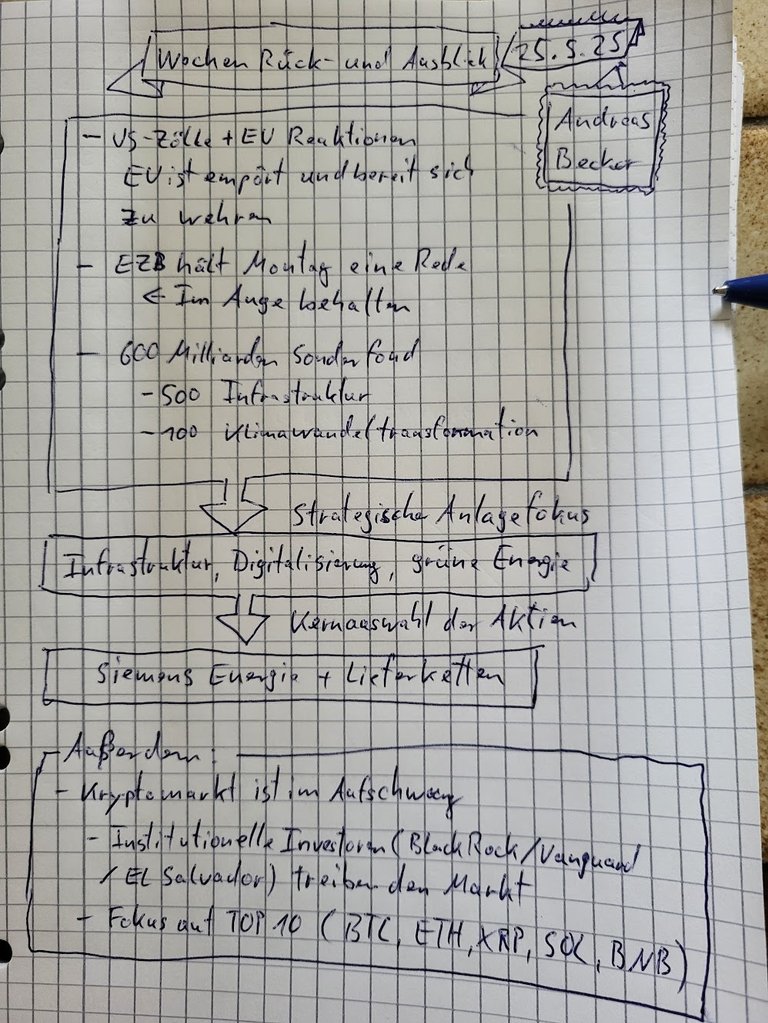 Wochen Rück- und Ausblick
25.5.25
Andreas
Becker
- US-Zölle + EU Reaktionen
EU ist empört und bereit sich
zu wehren
- EZB hält Montag eine Rede
← Im Auge behalten
- 600 Milliarden Sonderfond
- 500 Infrastruktur
- 100 Klimawandeltransformation
Strategischer Anlagefokus
Infrastruktur, Digitalisierung, grüne Energie
Kernauswahl der Aktien
Siemens Energie + Lieferketten
Außerdem:
- Kryptomarkt ist im Aufschwung
- Institutionelle Investoren (BlackRock/Vanguard
/ EL Salvador) treiben den Markt
- Fokus auf TOP 10 (BTC, ETH, XRP, SOL, BNB)